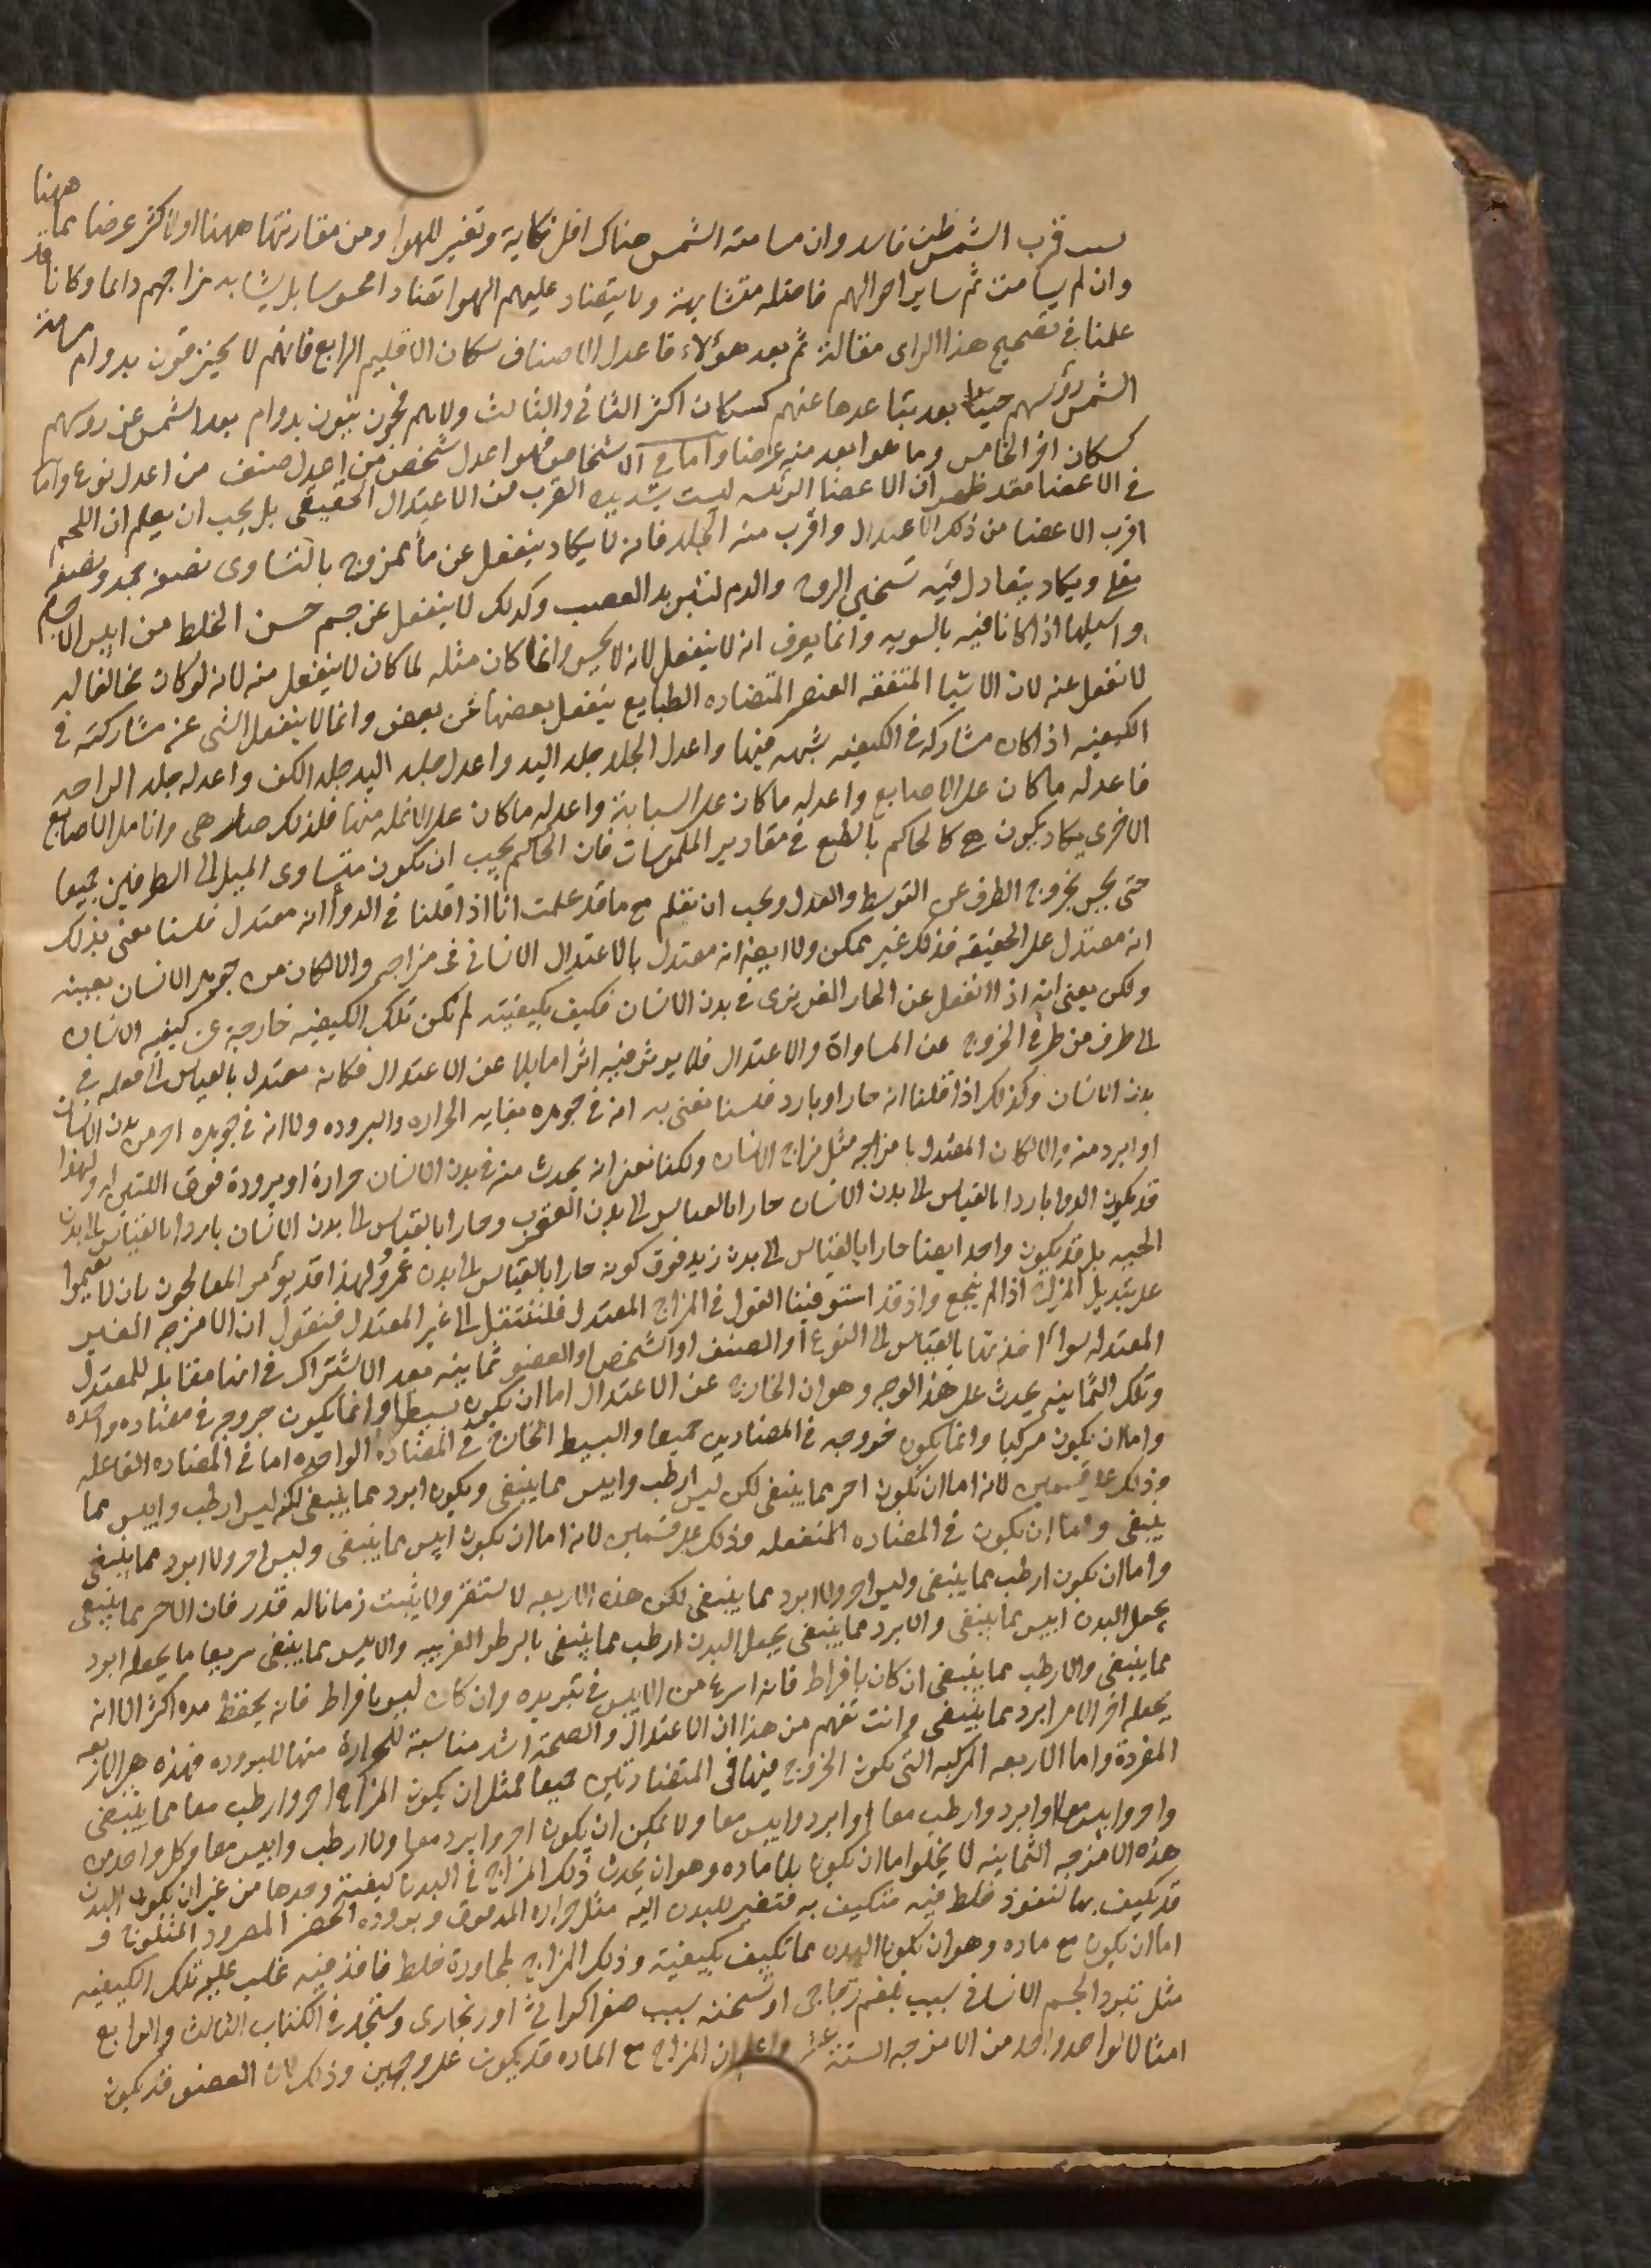 ههنا
سبب قرب الشمس ظن فاسد وان مسامته الشمس هناك اقل نكاية وتغير للهوا ومن مقاربتها ههنا او لاكثر عرضا مما
وان لم يسامت ثم ساير احوالهم فاضله متشابهة ولا يتضاد عليهم الهوا تضادا محسوسا بل يشابه مزاجهم دايما وكانا قد
علمنا في تصحيح هذا الراى مقالة ثم بعد هؤلاء فاعدل الاصناف سكان الاقليم الرابع فانهم لا يحترقون بدوام مسامتة
الشمس رؤسهم حينا بعد تباعدها عنهم كسكان اكثر الثانى والثالث ولا هم فجون نيون بدوام بعد الشمس عن روسهم
كسكان اخر الخامس وما هو ابعد منه عرضا واما في الاشخاص فهو اعدل شخص من اعدل صنف من اعدل نوع واما
في الاعضا فقد ظهر ان الاعضا الرئسه ليست شديدة القرب من الاعتدال الحقيقى بل يجب ان يعلم ان اللحم
اقرب الاعضا من ذلك الاعتدال واقرب منه الجلد فانه لا يكاد ينفعل عن ماً ممزوج بالتساوى نصفه جمد ونصفه
مغلى ويكاد يتعادل فيه تسخين الروح والدم لتبريد العصب وكذلك لا ينفعل عن جسم حسن الخلط من ايبس الاجسام
واسيلها اذا كانا فيه بالسويه وانما يعرف انه لا ينفعل لانه لا يحس وانما كان مثله لما كان لا ينفعل منه لانه لو كان مخالفا له
لانفعل عنه لان الاشيا المتفقه العنصر المتضاده الطبايع ينفعل بعضها عن بعض وانما لا ينفعل الشى عن مشاركته في
الكيفيه اذا كان مشاركه في الكيفيه شبهه فيها واعدل الجلد جلد اليد واعدل جلد اليد جلد الكف واعدله جلد الراحه
فاعدله ما كان على الاصابع واعدله ما كان على السبابة واعدله ما كان على الانمله منها فلذلك صار هى وانامل الاصابع
الاخرى يكاد يكون هى كالحاكم بالطبع في مقادير الملموسات فان الحاكم يجب ان يكون متساوى الميل الى الطرفين جميعا
حتى يحس بخروج الطرف عن التوسط والعدل ويجب ان تعلم مع ما قد علمت انا اذا قلنا في الدوا انه معتدل فلسنا نعنى بذلك
انه معتدل على الحقيقه فذلك غير ممكن ولا ايضا انه معتدل بالاعتدال الانسانى في مزاجه والا لكان من جوهر الانسان بعينه
ولكن يعنى انه اذا انفعل عن الحار الغريزى في بدن الانسان فكيف بكيفيته لم تكن تلك الكيفيه خارجة عن كيفيه الانسان
الى طرف من طرفى الخروج عن المساواة والاعتدال فلا يوثر فيه اثرا مايلا عن الاعتدال فكانه معتدل بالقياس الى فعله في
بدن الانسان وكذلك اذا قلنا انه حار او بارد فلسنا نعنى به انه في جوهره بغايه الحراره والبروده ولا انه في جوهره احر من بدن الانسان
او ابرد منه والا لكان المعتدل ما مزاجه مثل مزاج الانسان ولكنا نعنى انه يحدث منه في بدن الانسان حرارة او برودة فوق اللتين له ولهذا
قد يكون الدوا باردا بالقياس الى بدن الانسان حارا بالقياس الى بدن العقرب وحارا بالقياس الى بدن الانسان باردا بالقياس الى بدن
الحيه بل قد يكون واحد ايضا حارا بالقياس الى بدن زيد فوق كونه حارا بالقياس الى بدن عمرو ولهذا قد يؤمر المعالجون بان لا يقيموا
على تبديل المزاج اذا لم ينجع واذ قد استوفينا القول في المزاج المعتدل فلننتقل الى غير المعتدل فنقول ان الامزجه الغير
المعتدله سواء اخذتها بالقياس الى النوع او الصنف او الشخص او العضو ثمانيه بعد الاشتراك في انها مقابله للمعتدل
وتلك الثمانيه يحدث على هذا الوجه وهو ان الخارج عن الاعتدال اما ان يكون بسيطا وانما يكون خروجه في مضاده واحده
واما ان يكون مركبا وانما يكون خروجه في المضادين جميعا والبسيط الخارج في المضاده الواحده اما في المضاده الفاعله
وذلك على قسمين لانه اما ان يكون احر مما ينبغى لكن ليس ارطب وايبس مما ينبغى ويكون ابرد مما ينبغى لكنه ليس ارطب وايبس مما
ينبغى واما ان يكون في المضاده المنفعله وذلك على قسمين لانه اما ان يكون ايبس مما ينبغى وليس احر ولا ابرد مما ينبغى
واما ان يكون ارطب مما ينبغى وليس احر ولا ابرد مما ينبغى لكن هذه الاربعه لا تستقر ولا يثبت زمانا له قدر فان الاحر مما ينبغى
يجعل البدن ايبس مما ينبغى والابرد مما ينبغى يجعل البدن ارطب مما ينبغى بالرطوبه الغريبه والايبس مما ينبغى سريعا ما يجعله ابرد
مما ينبغى والارطب مما ينبغى ان كان بافراط فانه اسرع من الايبس في تبريده وان كان ليس بافراط فانه يحفظ مده اكثر الا انه
يجعله اخر الامر ابرد مما ينبغى وانت تفهم من هذا ان الاعتدال والصحة اشد مناسبة للحرارة منها للبروده فهذه هى الاربعه
المفردة واما الاربعه المركبه التى يكون الخروج فيها فى المتضادتين جميعا فمثل ان يكون المزاج احر وارطب معا مما ينبغى
واحر وايبس معا او ابرد وارطب معا او ابرد وايبس معا ولا يمكن ان يكون احر وابرد معا ولا ارطب وايبس معا وكل واحد من
هذه الامزجه الثمانيه لا يخلوا اما ان يكون بلا ماده وهو ان يحدث ذلك المزاج في البدن كيفية وحدها من غير ان يكون البدن
قد تكيف بها لنفوذ خلط فيه متكيف به فتغير للبدن اليه مثل حراره المدقوق وبروده الخصر المصرود المثلوج و
اما ان يكون مع ماده وهو ان يكون البدن مما تكيف بكيفية وذلك المزاج لمجاورة خلط نافذ فيه غلب عليه تلك الكيفيه
مثل تبرد الجسم الانسانى بسبب بلغم زجاجى او تسخنه بسبب صفرا كراثى او زنجارى وستجد في الكتاب الثالث والرابع
امثالا لواحد واحد من الامزجه الستة عشر واعلم ان المزاج مع الماده قد يكون على وجهين وذلك لان العضو قد يكون